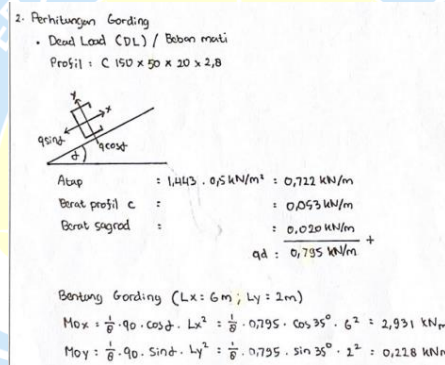 2. Perhitungan Gording
• Dead Load (DL) / Beban mati
Profil : C 150 x 50 x 20 x 2,8
y
x
q sin α
q cos α
α
Atap : 1,443 . 0,5 kN/m² : 0,722 kN/m
Berat profil c : : 0,053 kN/m
Berat sagrod : : 0,020 kN/m
+
qd : 0,795 kN/m
Bentang Gording (Lx : 6m ; Ly : 2m)
Mox : 1/8 . qD . cos α . Lx² : 1/8 . 0,795 . cos 35° . 6² : 2,931 kNm
Moy : 1/8 . qD . sin α . Ly² : 1/8 . 0,795 . sin 35° . 2² : 0,228 kNm